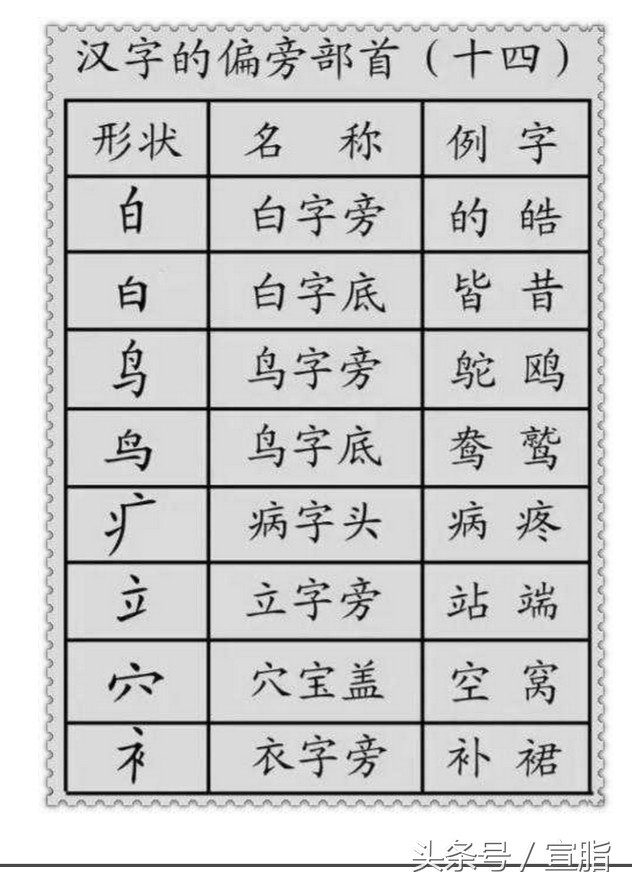 汉字的偏旁部首（十四）
形状 名 称 例 字
白 白字旁 的 皓
白 白字底 皆 昔
鸟 鸟字旁 鸵 鸥
鸟 鸟字底 鸯 鹫
疒 病字头 病 疼
立 立字旁 站 端
穴 穴宝盖 空 窝
衤 衣字旁 补 裙
头条号 / 宣脂